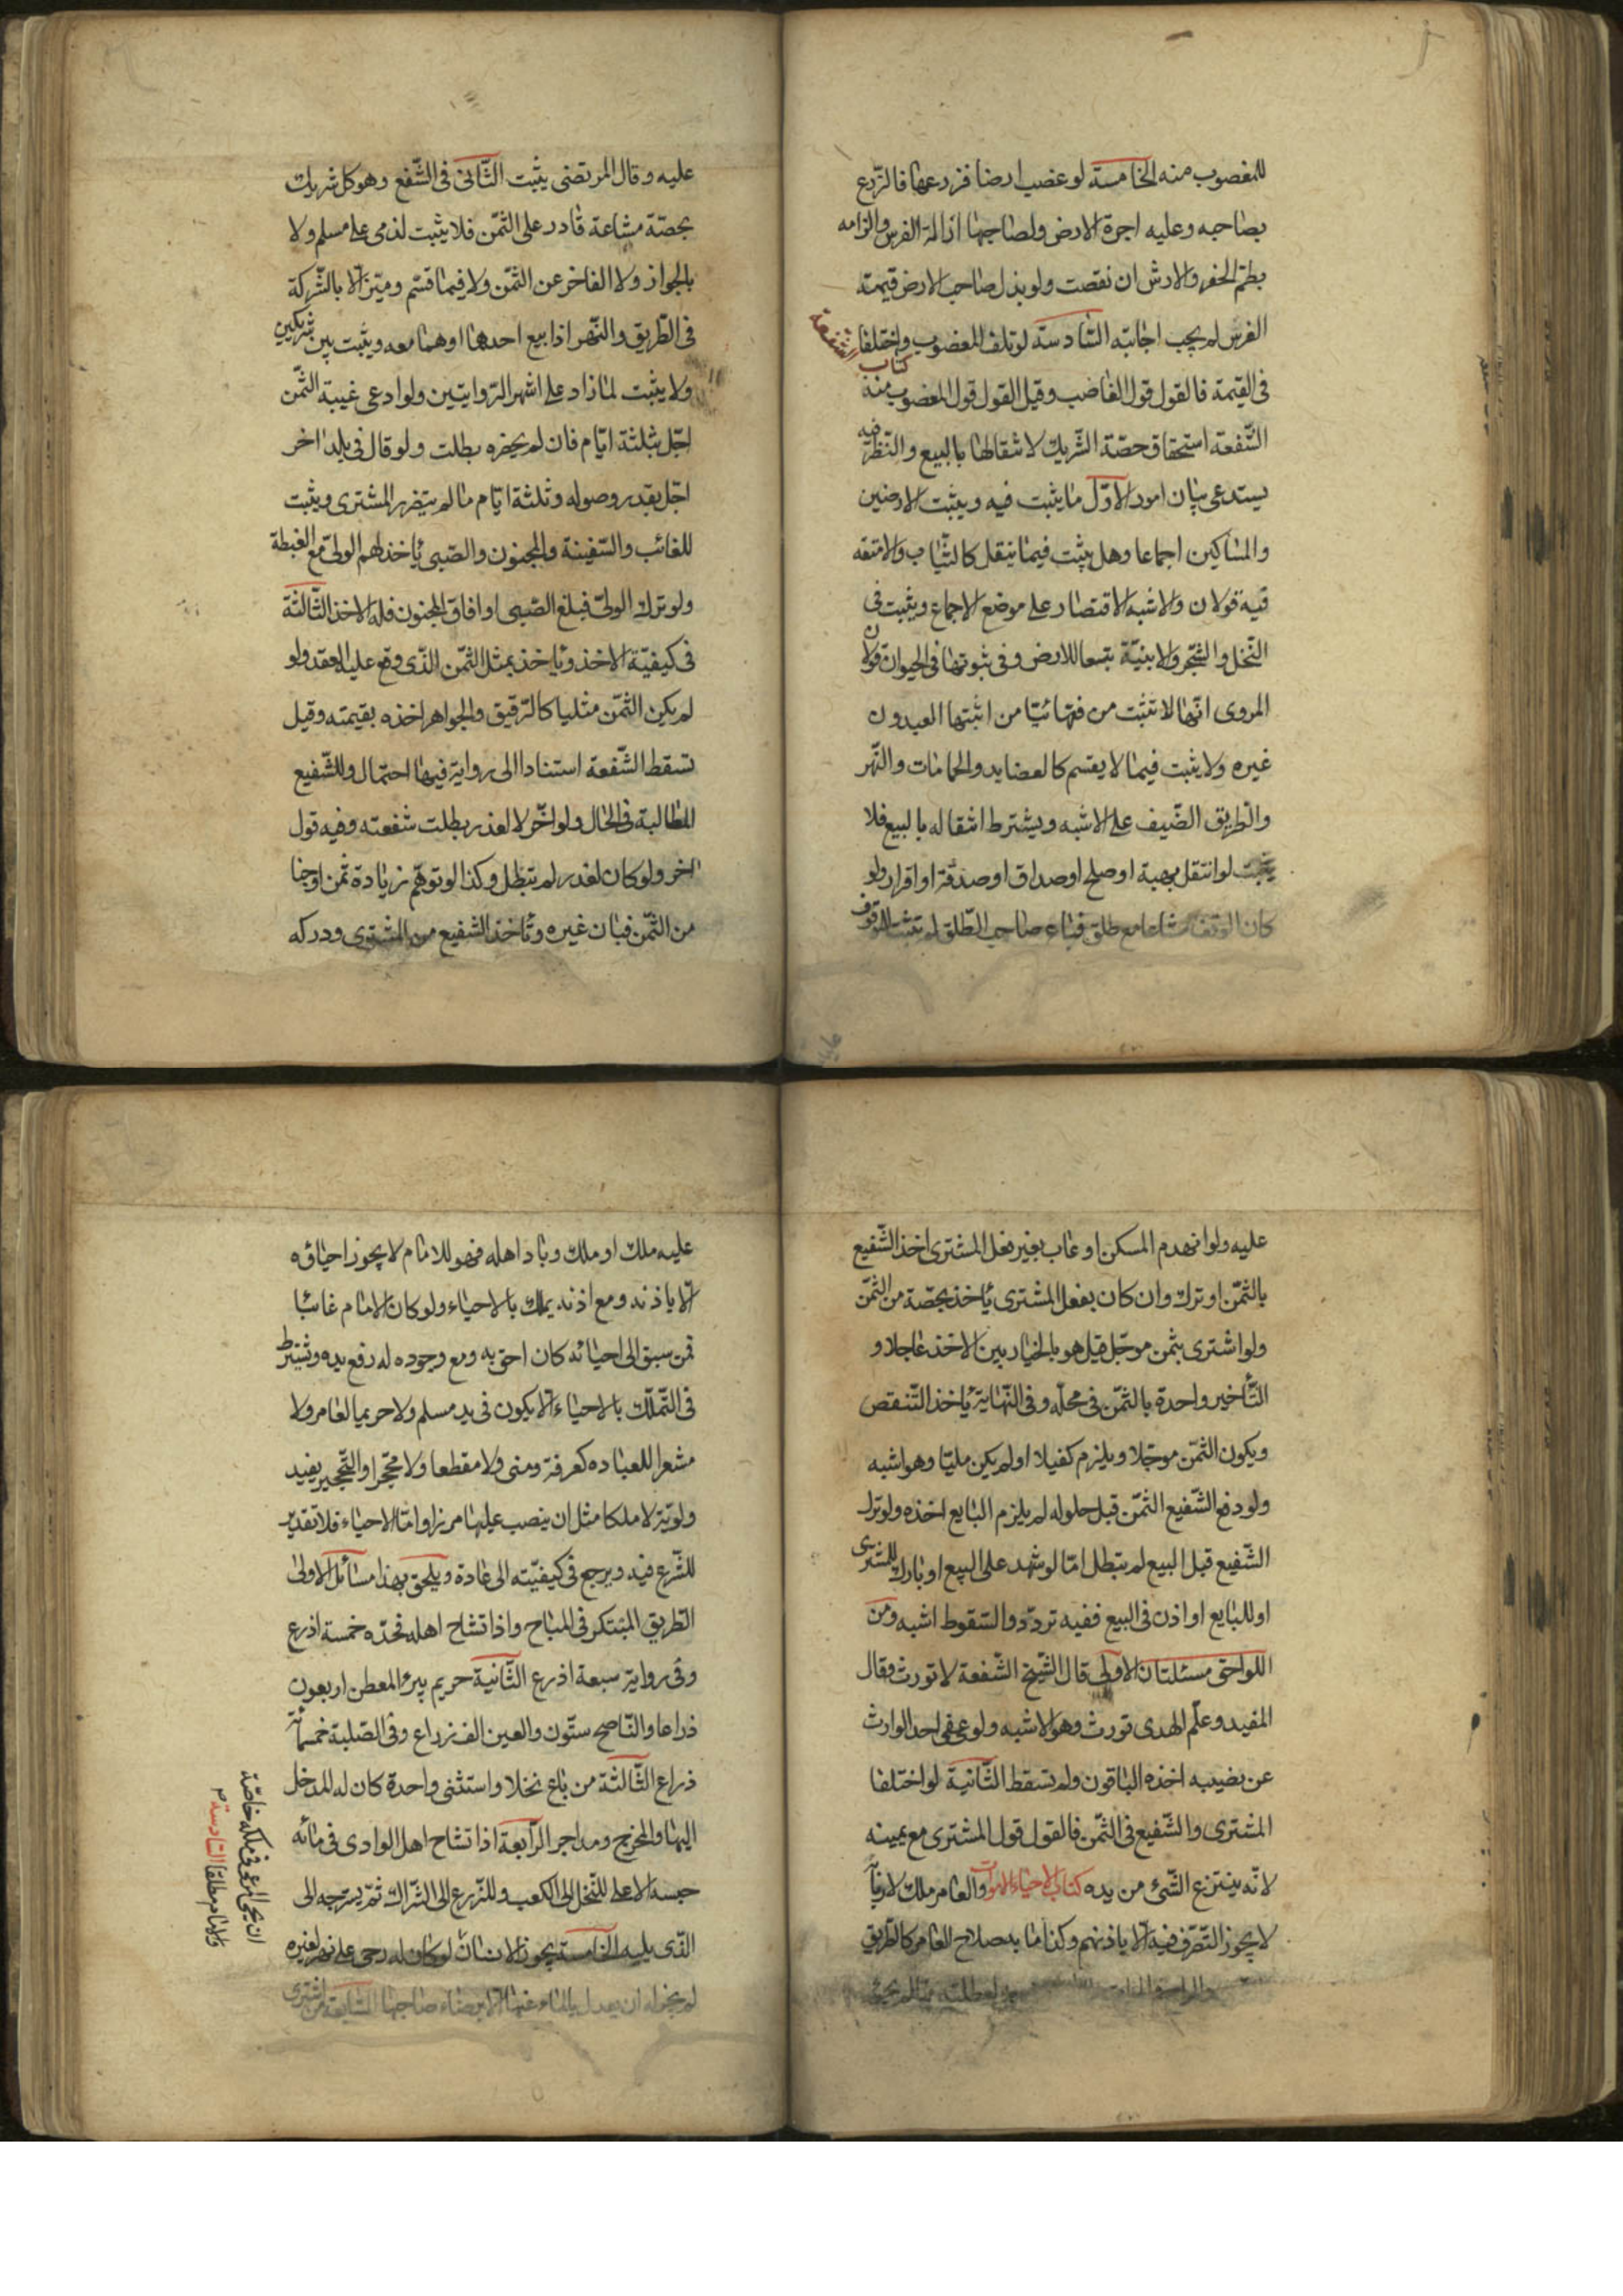 للمغصوب منه الخامسة لو غصب ارضا فزرعها فالزرع
بصاحبه وعليه اجرة الارض ولصاحبها ازالة الغرس والزامه
بطم الحفر والارش ان نقصت ولو بذل صاحب الارض قيمة
الغرس لم يجب اجابته السادسة لو تلف المغصوب واختلفا
فى القيمة فالقول قول الغاصب وقيل القول قول المغصوب منه
كتاب الشفعة
الشفعة استحقاق حصة الشريك لانتقالها بالبيع والنظر فيه
يستدعى بيان امور الاول ما يثبت فيه ويثبت الارضين
والمساكين اجماعا وهل يثبت فيما ينقل كالثياب والامتعه
فيه قولان والاشبه الاقتصار على موضع الاجماع ويثبت فى
النخل والشجر والابنية تبعا للارض وفى ثبوتها فى الحيوان قولان
المروى انها لا تثبت من فقهائنا من اثبتها العبد دون
غيره ولا يثبت فيما لا يقسم كالعضايد والحمامات والنهر
والطريق الضيف على الاشبه ويشترط انتقاله بالبيع فلا
يثبت لو انتقل بهبة او صلح او صداق او صدقة او اقرار ولو
كان الوقف مشاعا مع طلق فباع صاحب الطلق لم تثبت للموقوف
عليه وقال المرتضى يثبت الثانى فى الشفع وهو كل شريك
بحصة مشاعة قادر على الثمن فلا يثبت لذمى على مسلم ولا
بالجواز ولا الفاخر عن الثمن ولا فيما قسم وميز الا بالشركة
فى الطريق والنهر اذا بيع احدهما او هما معه ويثبت بين شريكين
ولا يثبت لما زاد على اشهر الروايتين ولو ادعى غيبة الثمن
اجل بثلثة ايام فان لم يحضره بطلت ولو قال فى بلد اخر
اجل بقدر وصوله وثلثة ايام ما لم يتضرر المشترى ويثبت
للغائب والسفينة والمجنون والصبى ياخذ لهم الولى مع الغبطة
ولو ترك الولى فبلغ الصبى او افاق المجنون فله الاخذ الثالثة
فى كيفية الاخذ وياخذ بمثل الثمن الذى وقع عليه العقد ولو
لم يكن الثمن مثليا كالرقيق والجواهر اخذه بقيمته وقيل
تسقط الشفعة استنادا الى رواية فيها احتمال وللشفيع
المطالبة فى الحال ولو اخر لا لعذر بطلت شفعته وفيه قول
اخر ولو كان لعذر لم تبطل وكذا لو توهم زيادة ثمن او جنا
من الثمن فبان غيره وتاخذ الشفيع من المشترى ودركه
عليه ولو انهدم المسكن او عاب بغير فعل المشترى اخذ الشفيع
بالثمن او ترك وان كان بفعل المشترى ياخذ بحصة من الثمن
ولو اشترى بثمن موجل قيل هو بالخيار بين الاخذ عاجلا و
التأخير واحدة بالثمن فى محله وفى النهاية ياخذ التنقص
ويكون الثمن موجلا ويلزم كفيلا او لم يكن مليا وهو اشبه
ولو دفع الشفيع الثمن قبل حلوله لم يلزم البايع اخذه ولو ترك
الشفيع قبل البيع لم تبطل اما لو شهد على البيع او بارك للمشترى
او للبايع او اذن فى البيع ففيه تردد والسقوط اشبه ومن
اللواحق مسئلتان الاولى قال الشيخ الشفعة لا تورث وقال
المفيد وعلم الهدى تورث وهو الاشبه ولو عفى احد الوارث
عن نصيبه اخذه الباقون ولم تسقط الثانية لو اختلفا
المشترى والشفيع فى الثمن فالقول قول المشترى مع يمينه
لانه ينتزع الشئ من يده كتاب الاحياء الموات والعامر ملك لاربابه
لا يجوز التصرف فيه الا باذنهم وكذا ما به صلاح العامر كالطريق
عليه ملك او ملك وباد اهله فهو للامام لا يجوز احياؤه
الا باذنه ومع اذنه يملك بالاحياء ولو كان الامام غائبا
فمن سبق الى احيائه كان احق به ومع وجوده له رفع يده ويشترط
فى التملك بالاحياء الا يكون فى يد مسلم ولا حريما لعامر ولا
مشعرا للعباده كعرفة ومنى ولا مقطعا ولا محجرا والتحجير يفيد
ولوية لا ملكا مثل ان ينصب عليها مرزا واما الاحياء فلا تقدير
للشرع فيه ويرجع فى كيفيته الى عادة ويلحق بهذا مسائل الاولى
الطريق المبتكر فى المباح واذا تشاح اهله فحده خمسة اذرع
وفى رواية سبعة اذرع الثانية حريم بير المعطن اربعون
ذراعا والناضح ستون والعين الف زراع وفى الصلبة خمسمأة
ذراع الثالثة من باع نخلا واستثنى واحدة كان له المدخل
اليها والمخرج ومداجر الرابعة اذا تشاح اهل الوادى فى مائه
حبسه الاعلى للنخل الى الكعب وللزرع الى الشراك ثم يسرحه الى
الذى يليه الخامسة يجوز الانسان لو كان له رحى على نهر لغيره
لم يجز له ان يعدل بالماء عنها الا برضاء صاحبها السابعة من اشترى
ان يحمى المرعى فى ملكه خاصة
وللامام مطلقا السادسة